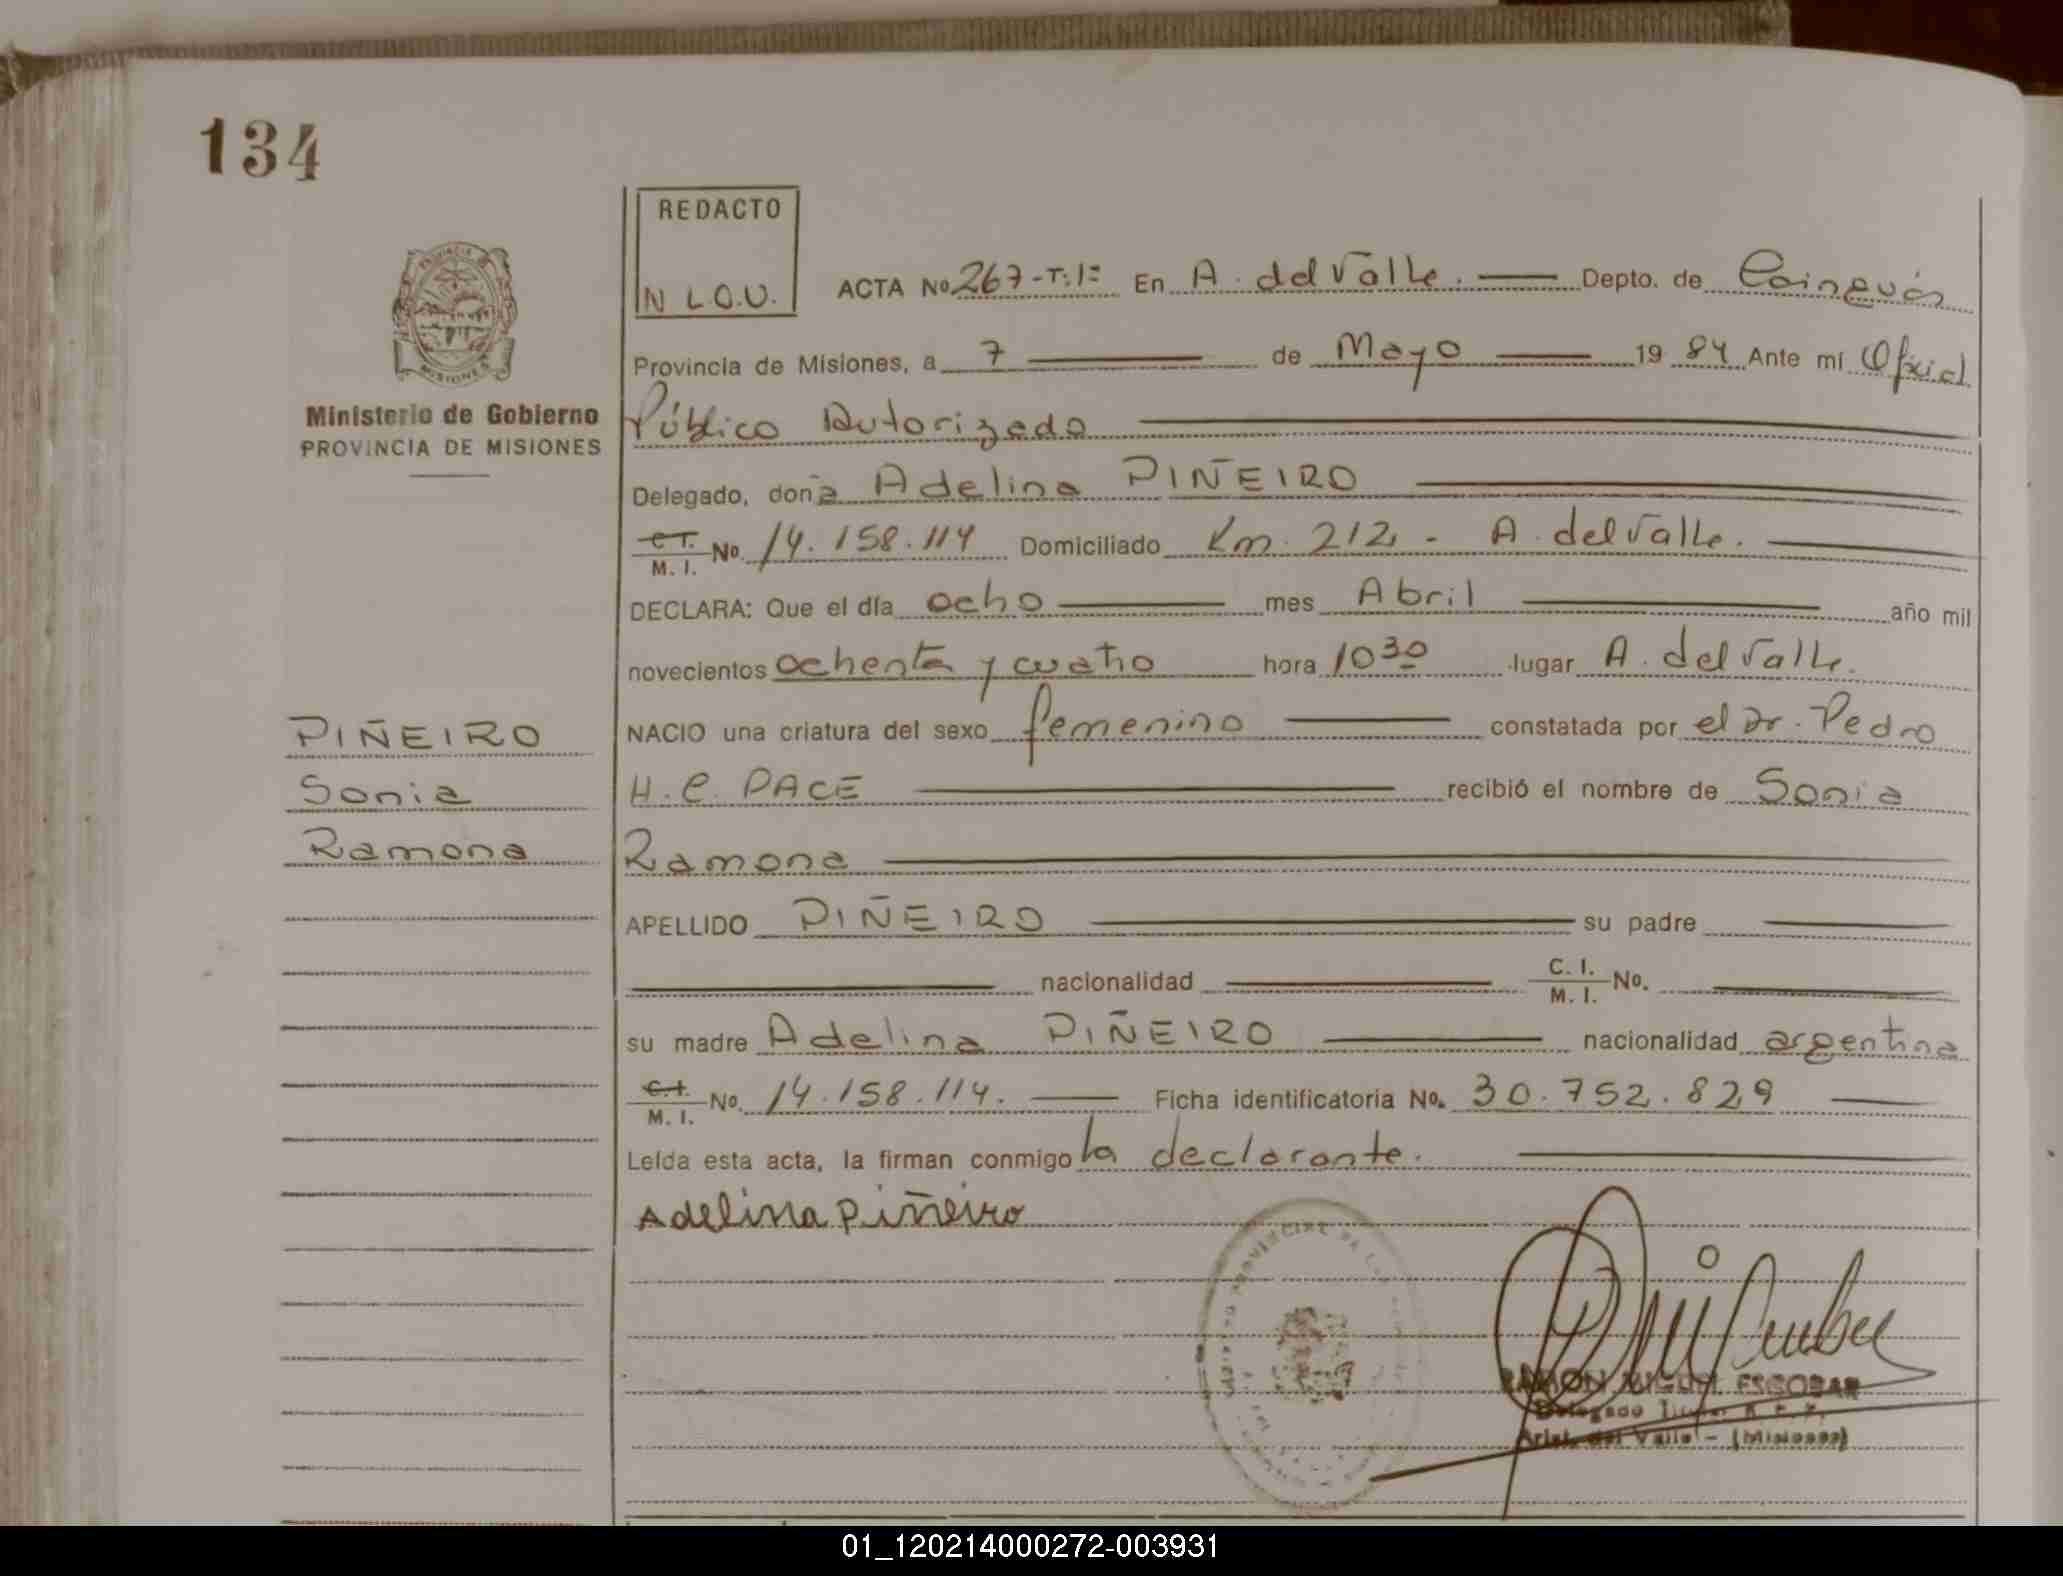 134
REDACTO
N L.O.U.
ACTA No 267-T:1º En A. del Valle. Depto. de Cainguás
Provincia de Misiones, a 7 de Mayo 19 84 Ante mí Oficial
Ministerio de Gobierno
PROVINCIA DE MISIONES
Público Autorizado
Delegado, doña Adelina PIÑEIRO
C.I. M. I. No. 14.158.114 Domiciliado Km. 212 - A. del Valle.
DECLARA: Que el día ocho mes Abril año mil
novecientos ochenta y cuatro hora 10 30 lugar A. del Valle.
PIÑEIRO
Sonia
Ramona
NACIO una criatura del sexo femenino constatada por el Dr. Pedro
H. C. PACE recibió el nombre de Sonia
Ramona
APELLIDO PIÑEIRO su padre
nacionalidad C. I. M. I. No.
su madre Adelina PIÑEIRO nacionalidad argentina
C.I. M. I. No. 14.158.114. Ficha identificatoria No. 30.752.829
Leída esta acta, la firman conmigo la declarante.
Adelina Piñeiro
RAMON MIGUEL ESCOBAR
Delegado Titular R. P. P.
Arist. del Valle - (Misiones)
01_120214000272-003931